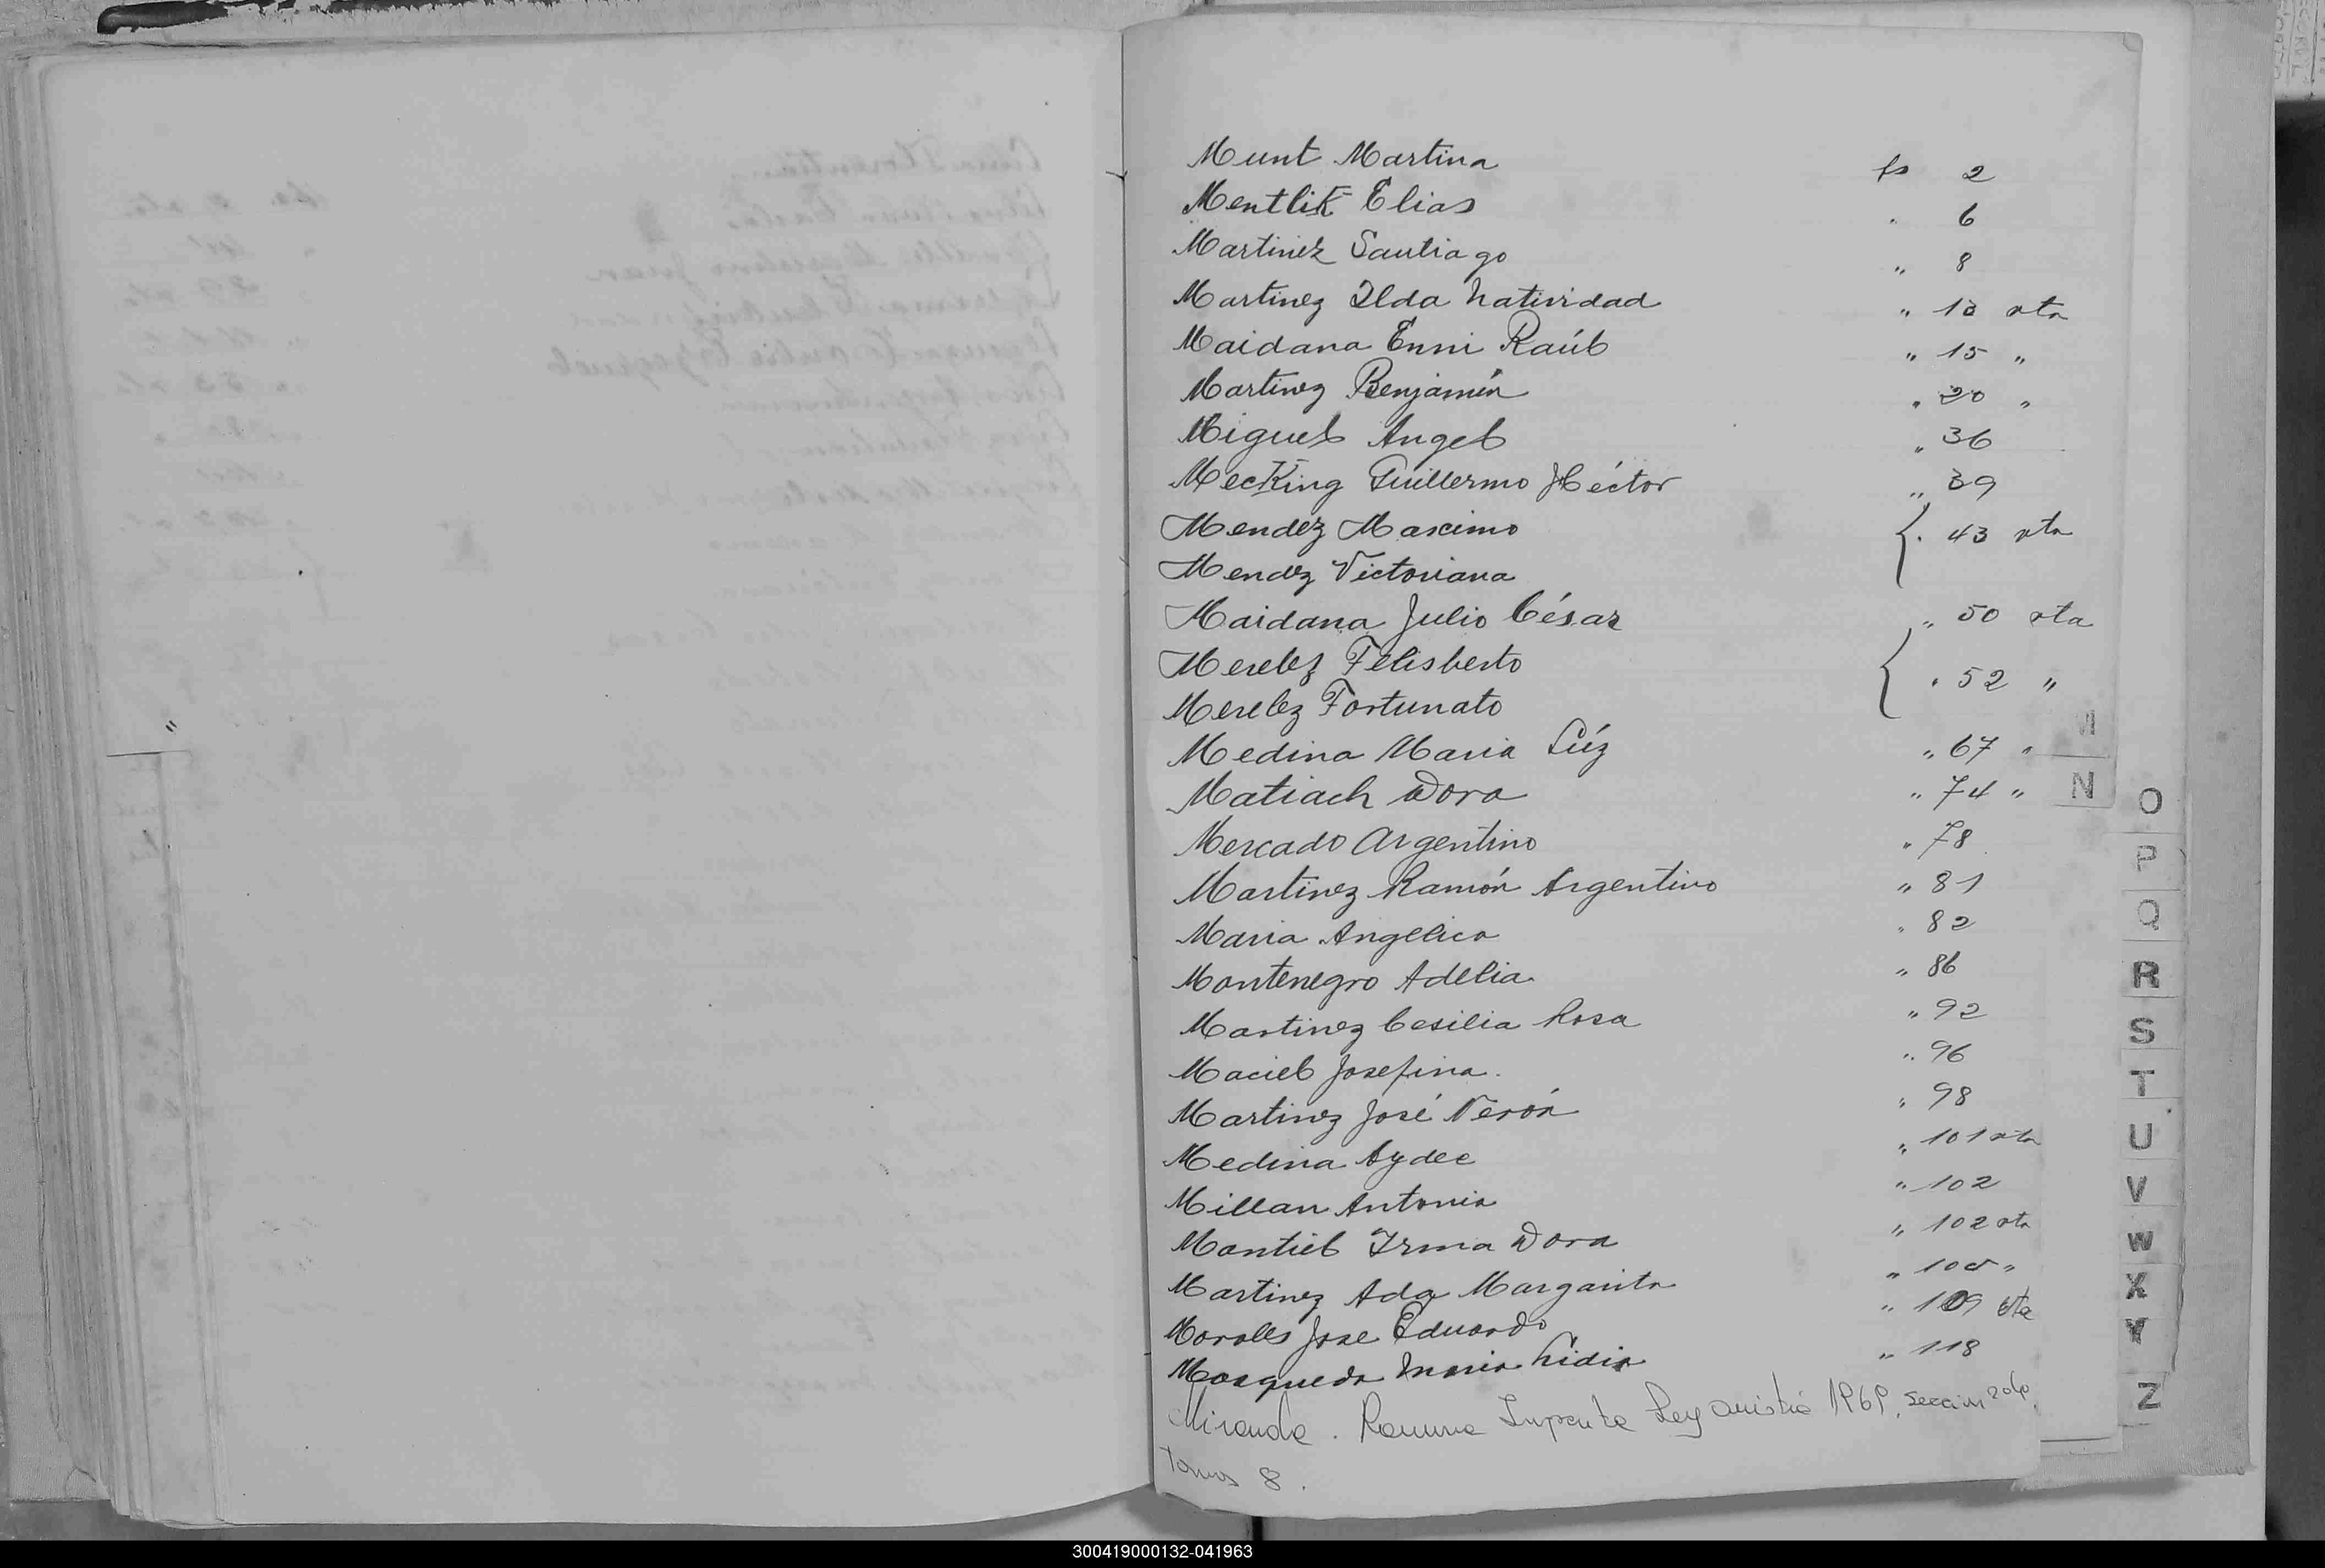 Munt Martina fs 2
Mentlik Elias " 6
Martinez Santiago " 8
Martinez Ilda Natividad " 13 vta
Maidana Enni Raúl " 15 "
Martinez Benjamín " 20 "
Miguel Angel " 36
Mecking Guillermo Héctor " 39
Mendez Maximo { " 43 vta
Mendez Victoriana
Maidana Julio César " 50 vta
Merelez Felisberto { " 52 "
Merelez Fortunato
Medina Maria Lúz " 67 "
Matiach Dora " 74 "
Mercado Argentino " 78
Martinez Ramón Argentino " 81
Maria Angelica " 82
Montenegro Adelia " 86
Martinez Cesilia Rosa " 92
Maciel Josefina " 96
Martinez José Verón " 98
Medina Aydee " 101 vta
Millan Antonia " 102
Montiel Irma Dora " 102 vta
Martinez Ada Margarita " "
Moralls Jose Eduardo " 109 vta
Mosqueda Maria Lidia " 118
Miranda. Ramona Ley 1969. Seccion 20
Tomos 8.
N
O
P
Q
R
S
T
U
V
W
X
Y
Z
300419000132-041963